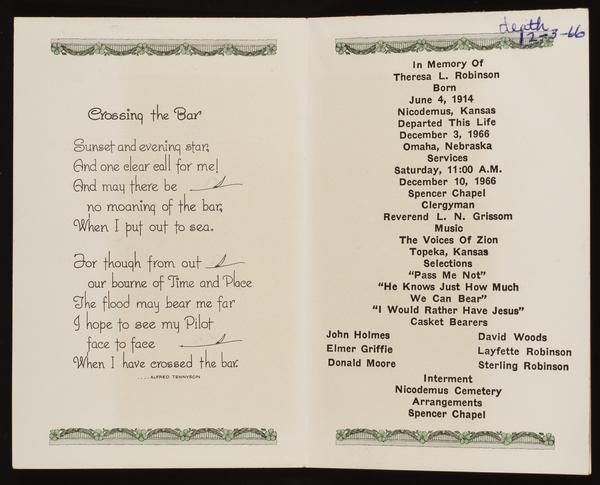 Crossing the Bar
Sunset and evening star,
And one clear call for me!
And may there be
no moaning of the bar,
When I put out to sea.
For though from out
our bourne of Time and Place
The flood may bear me far
I hope to see my Pilot
face to face
When I have crossed the bar.
....ALFRED TENNYSON
death
12-3-66
In Memory Of
Theresa L. Robinson
Born
June 4, 1914
Nicodemus, Kansas
Departed This Life
December 3, 1966
Omaha, Nebraska
Services
Saturday, 11:00 A.M.
December 10, 1966
Spencer Chapel
Clergyman
Reverend L. N. Grissom
Music
The Voices Of Zion
Topeka, Kansas
Selections
"Pass Me Not"
"He Knows Just How Much
We Can Bear"
"I Would Rather Have Jesus"
Casket Bearers
John Holmes David Woods
Elmer Griffie Layfette Robinson
Donald Moore Sterling Robinson
Interment
Nicodemus Cemetery
Arrangements
Spencer Chapel